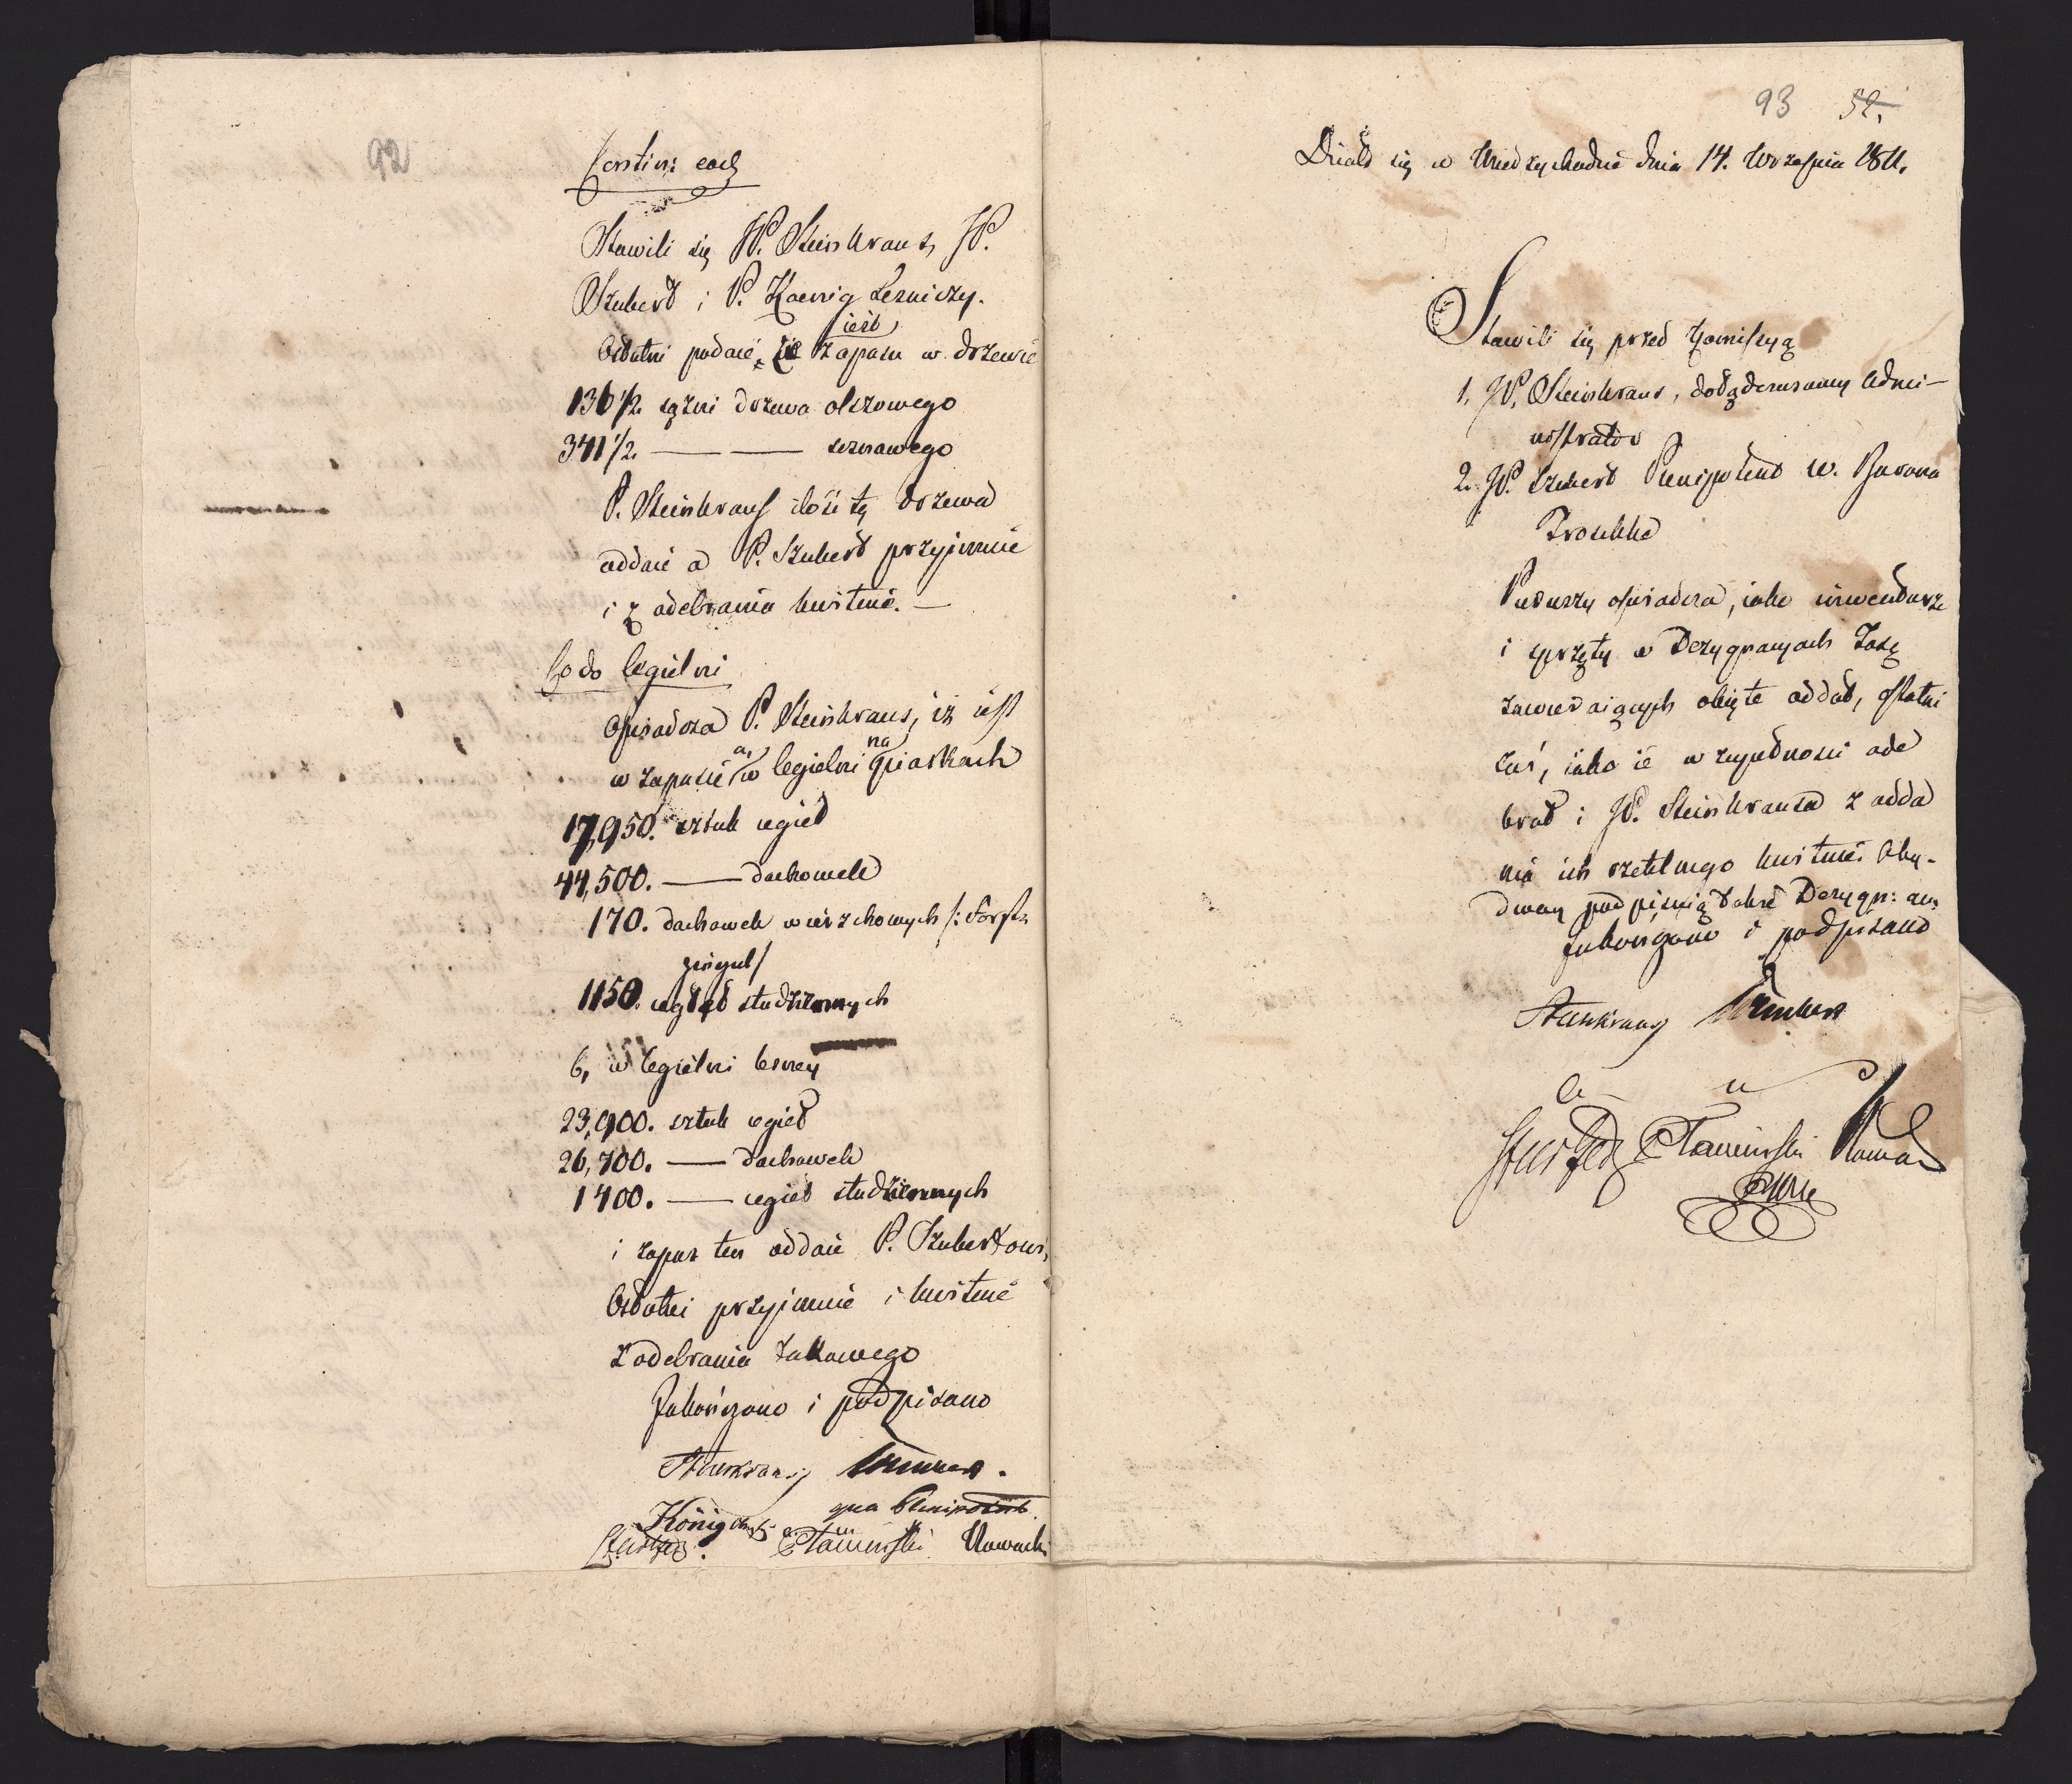 92
Contin: eod:
Stawili się JP. Steinkraus, JP.
Szubert i P. Koenig Leśniczy.
Ostatni podaie, że iest zapasu w drzewie
136 1/2 sążni drzewa olszowego
341 1/2 — — sosnowego
P. Steinkraus ilość tę drzewa
oddaie a P. Szubert przyjmuie
i z odebrania kwituie. —
Co do Cegielni
Oświadcza P. Steinkraus, iż iest
w zapasie a, w Cegielni na piaskach
17,950. sztuk cegieł
44,500. — dachowek
170. dachowek wierzchowych /: Forst
ziegel/
1150. cegieł studziennych
b, w Cegielni lesney
23,900. sztuk cegieł
26,700. — dachowek
1400. — cegieł studziennych
i zapas ten oddaie P. Szubertowi,
Ostatni przyjmuie i kwituie
z odebrania takowego
Zakończono i podpisano
Steinkraus
qua Plenipotent
König
Nowacki
93 52.
Działo się w Międzychodzie dnia 14. Września 1811.
Stawili się przed Kommissyą
1. JP. Steinkraus, dotąd Admi-
nistrator
2. JP. Szubert Plenipotent W. Barona
Troschke
Pierwszy oświadcza, iako inwentarze
i sprzęty w Dezygnacyach Taxę
zawieraiących obięte oddał, ostatni
zaś, iako ie w zupełności ode
brał i JP. Steinkrausa z odda
nia ich rzetelnego kwituie. Oby-
dway podpisuią także Dezygn:
Zakonczono i podpisano
Steinkraus
a u